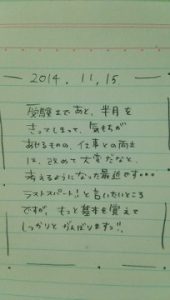 2014. 11. 15
受験まであと、半月を
きってしまって、気もちが
あせるものの、仕事との両立
は、改めて大変だなと、
考えるようになった最近です・・・
ラストスパート！と言いたいところ
ですが、もっと基本を覚えて
しっかりと がんばりますっ!!